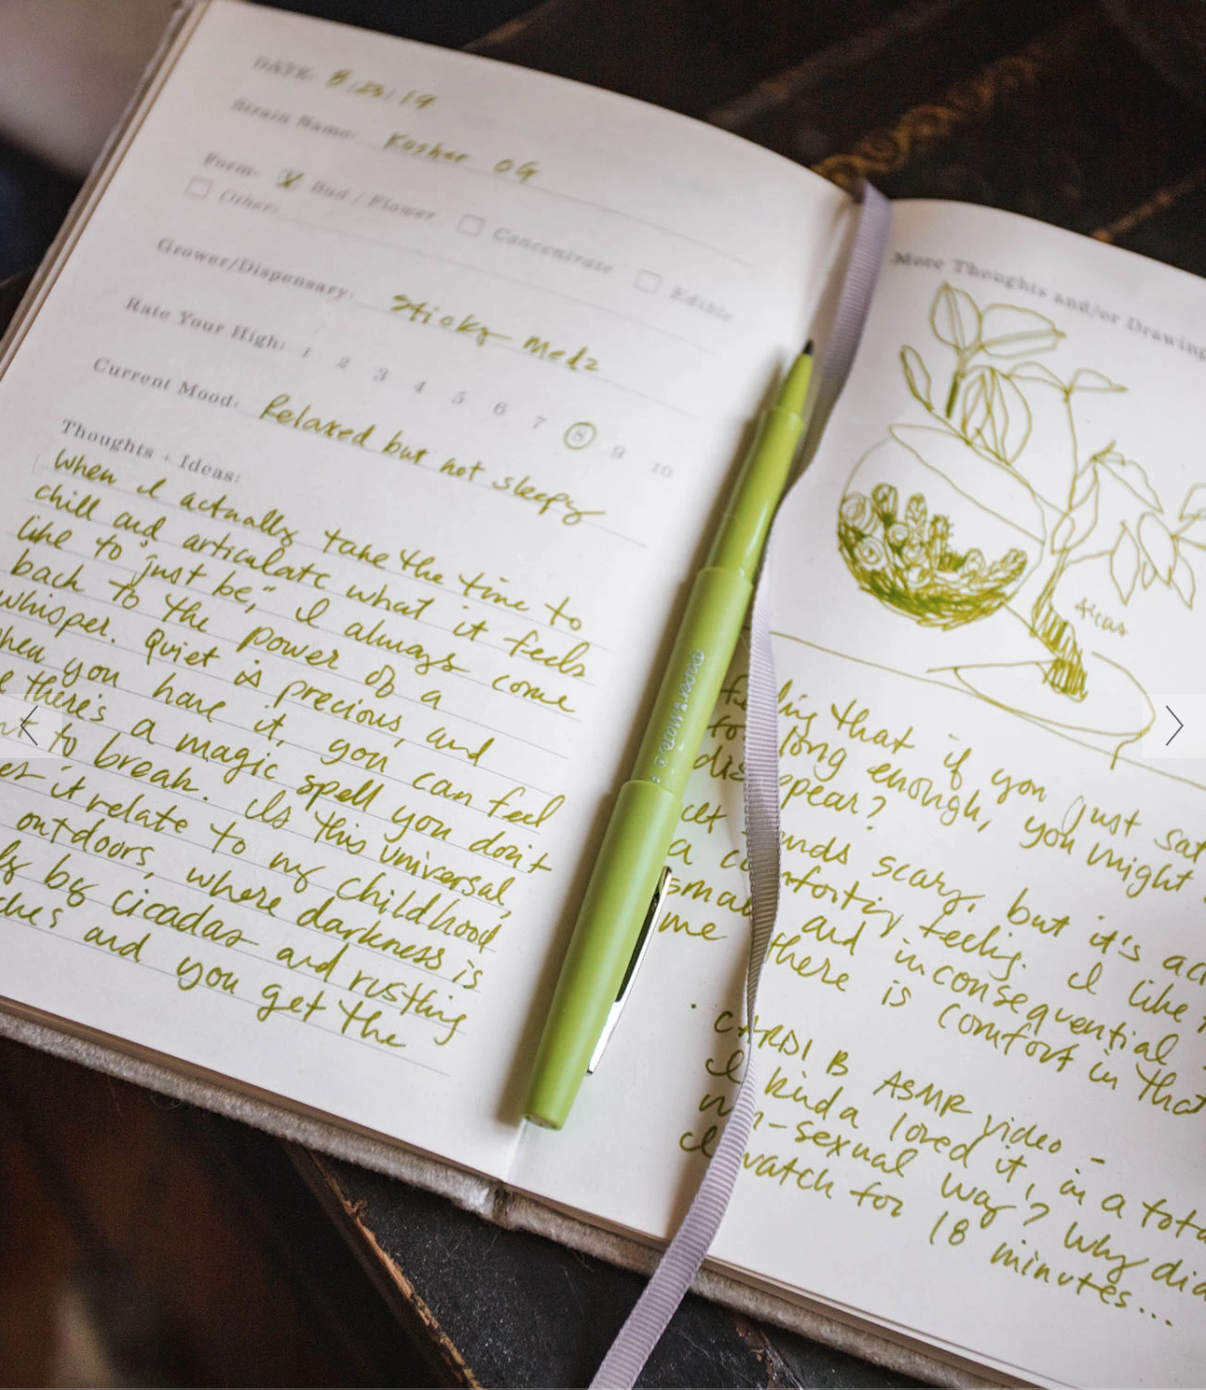 DATE: 8/23/19
Strain Name: Kosher OG
Form: Bud / Flower Concentrate Edible
Other:
Grower/Dispensary: Sticky Medz
Rate Your High: 1 2 3 4 5 6 7 8 9 10
Current Mood: Relaxed but not sleepy
Thoughts + Ideas:
When I actually take the time to
chill and articulate what it feels
like to "just be," I always come
back to the power of a
whisper. Quiet is precious, and
when you have it, you can feel
like there's a magic spell you don't
want to break. Is this universal,
or it relate to my childhood
outdoors, where darkness is
by cicadas and rustling
and you get the
More Thoughts and/or Drawing
feeling that if you just sat
for long enough, you might
disappear?
sounds scary, but it's
a comforting feeling. I like
small and inconsequential
me there is comfort in that
CARDI B ASMR video -
I kinda loved it, in a
non-sexual way? Why
I watch for 18 minutes...